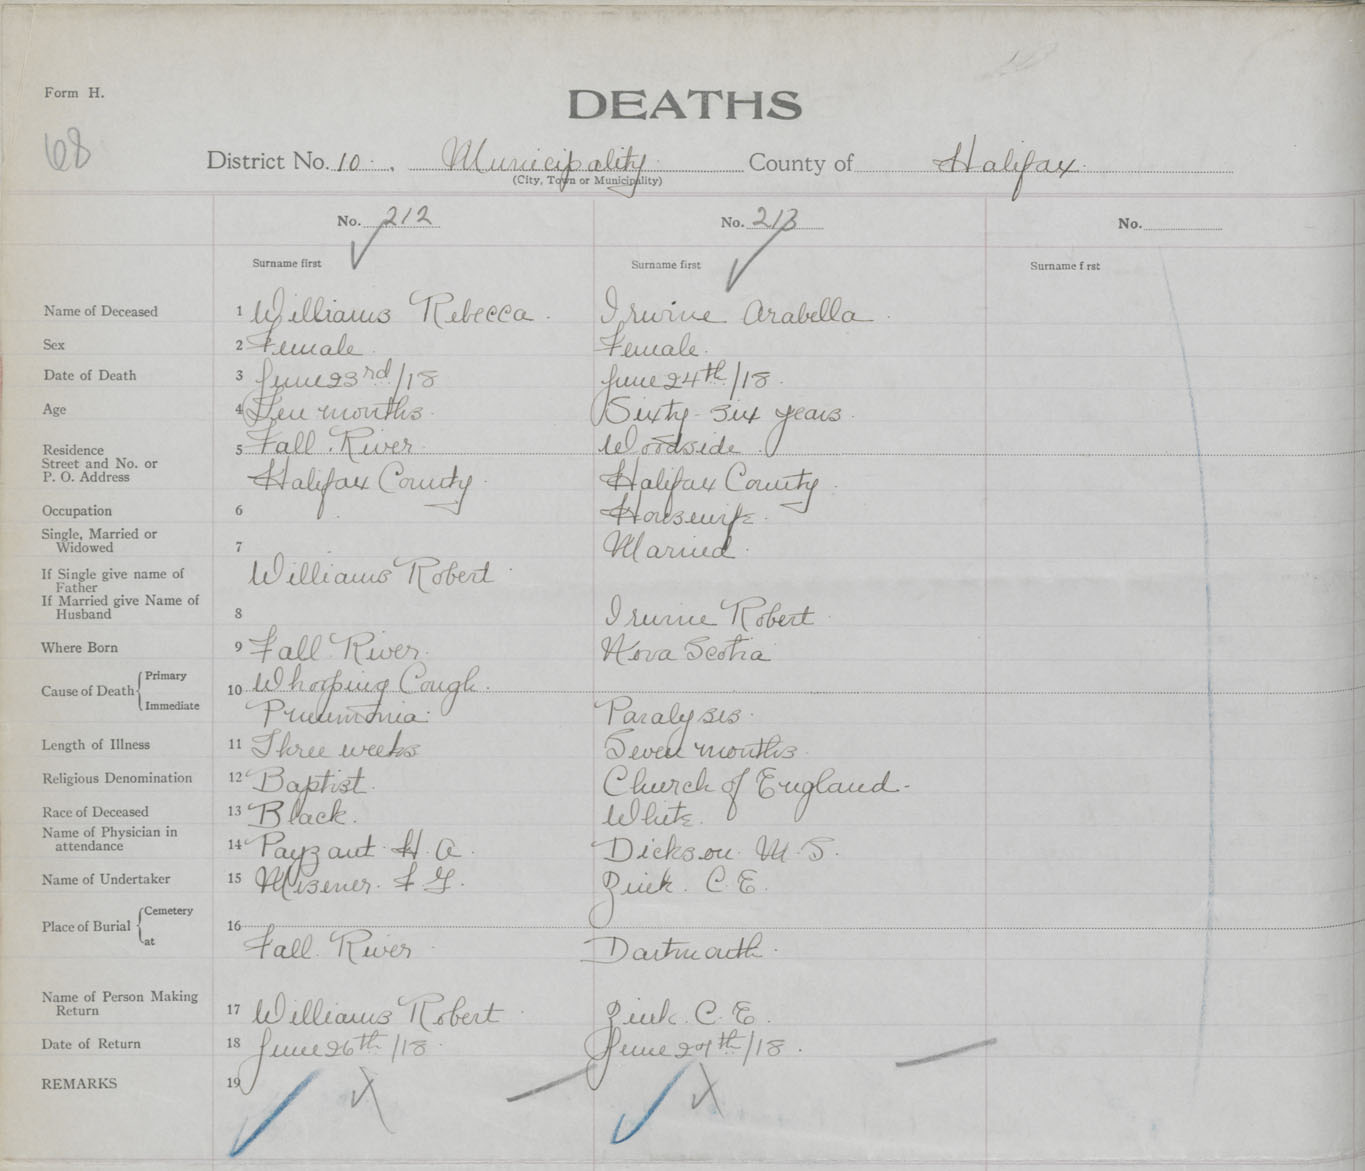 Form H.
DEATHS
68
District No. 10. , Municipality County of Halifax
(City, Town or Municipality)
No. 212 No. 213 No.
Surname first Surname first Surname f rst
Name of Deceased 1 Williams Rebecca. Irvine Arabella.
Sex 2 Female. Female.
Date of Death 3 June 23rd/18 June 24th/18.
Age 4 Ten months. Sixty-six years.
Residence 5 Fall River. Woodside.
Street and No. or
P. O. Address Halifax County. Halifax County.
Occupation 6 Housewife.
Single, Married or
Widowed 7 Married.
If Single give name of Williams Robert.
Father
If Married give Name of
Husband 8 Irvine Robert.
Where Born 9 Fall River. Nova Scotia
Primary
Cause of Death 10 Whooping Cough.
Immediate Pneumonia. Paralysis.
Length of Illness 11 Three weeks Seven months.
Religious Denomination 12 Baptist. Church of England.
Race of Deceased 13 Black. White.
Name of Physician in
attendance 14 Payzant. H. A. Dickson. M. S.
Name of Undertaker 15 Misener. F G. Zink. C. E.
Cemetery
Place of Burial 16
at Fall River Dartmouth.
Name of Person Making
Return 17 Williams Robert. Zink. C. E.
Date of Return 18 June 26th/18. June 29th/18.
REMARKS 19